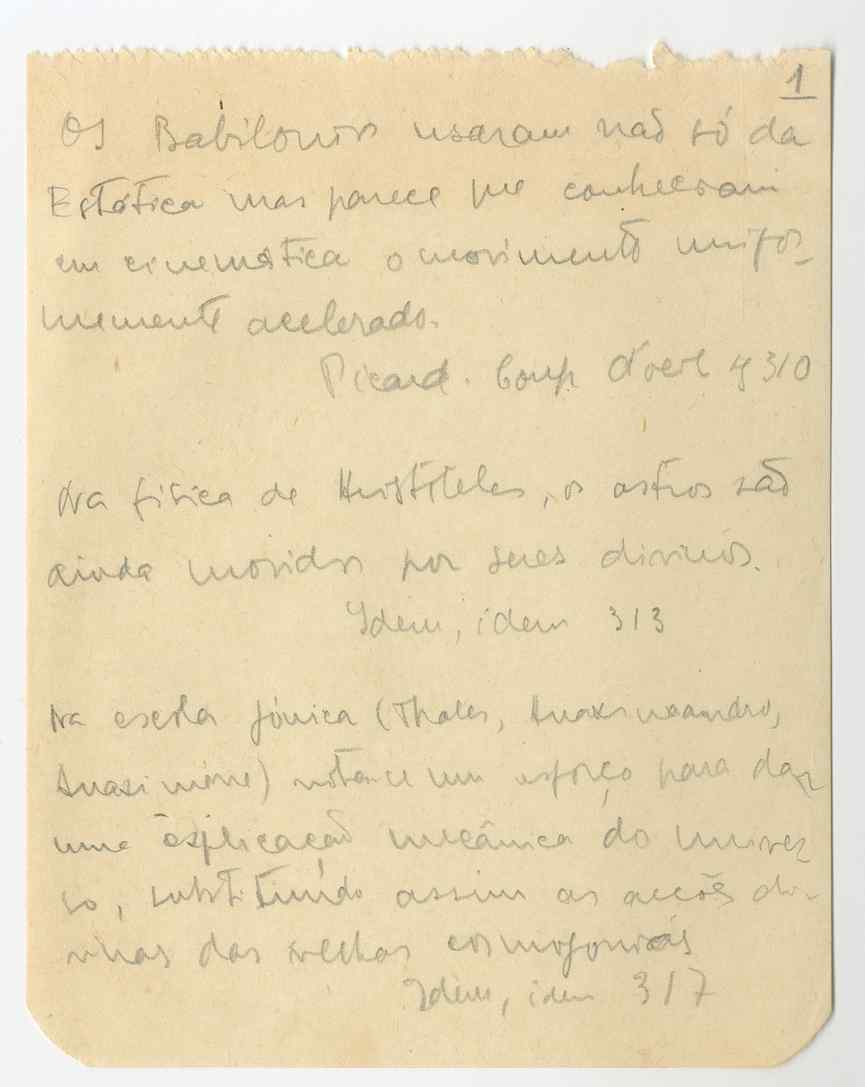 1
Os Babilonios usaram não só da
Estática mas parece que conheceram
em cinemática o movimento unifor-
memente acelerado.
Picard. Coup d'oeil 310
Na física de Aristóteles, os astros são
ainda movidos por seres divinos.
Idem, idem 313
Na escola Jónica (Thales, Anaximandro,
Anaximène) nota-se um esforço para dar
uma explicação mecânica do univer-
so, substituindo assim as acções di-
vinas das velhas cosmogonias
Idem, idem 317